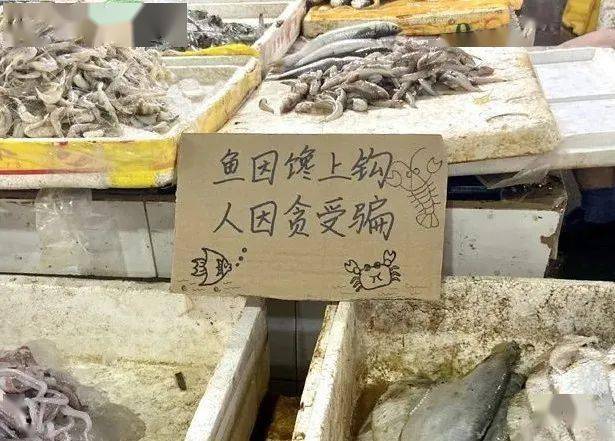 鱼因馋上钩
人因贪受骗